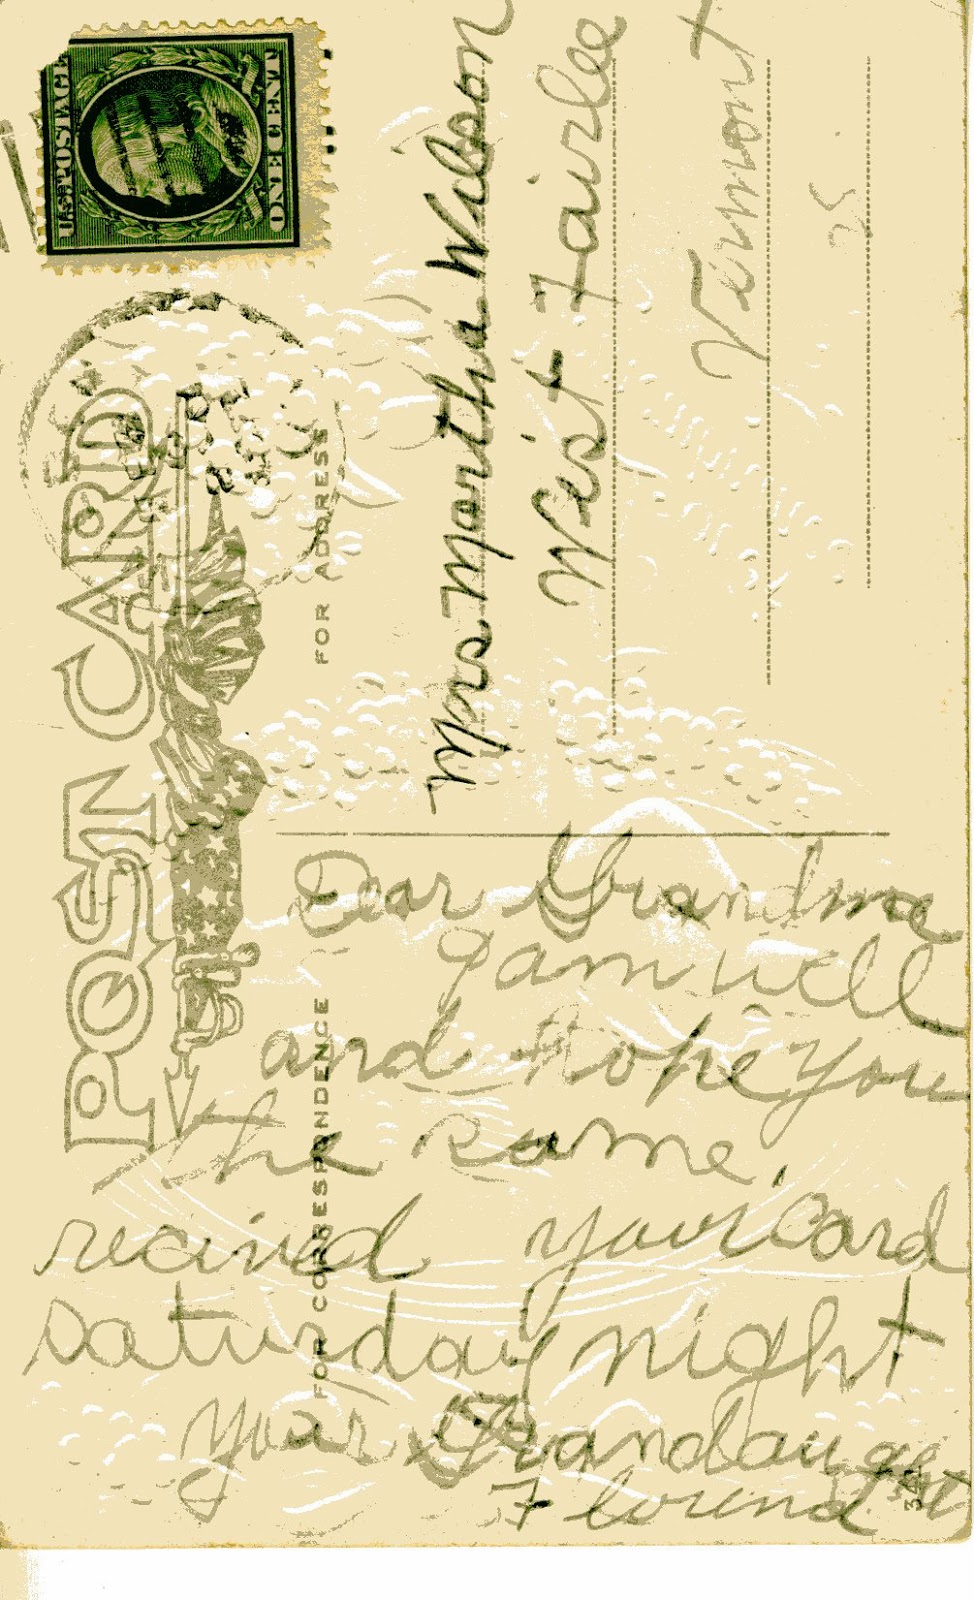 POST CARD
FOR CORRESPONDENCE
FOR ADDRESS
U.S. POSTAGE
ONE CENT
Mrs. Martha Wilson
West Fairlee
Vermont
25.
Dear Grandma
I am well
and hope you
the same.
recived your Card
saturday night
your
Florence